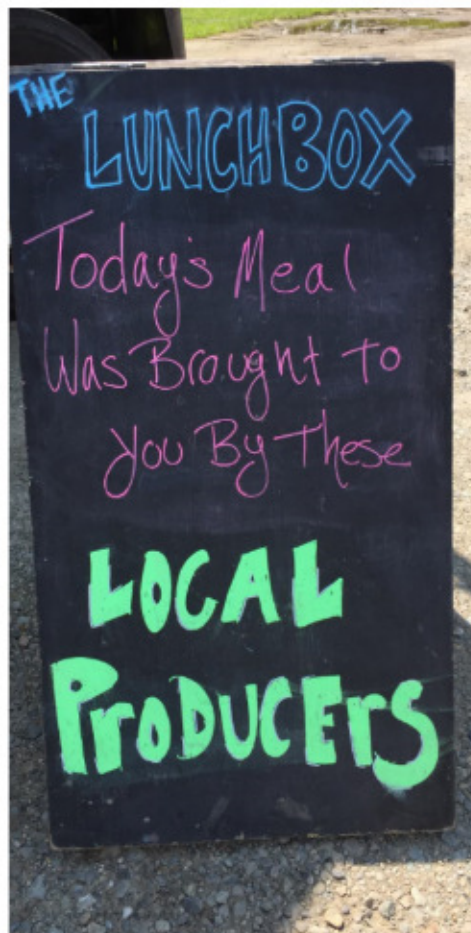 THE
LUNCHBOX
Today's Meal
Was Brought To
You By These
LOCAL
PrODUCErS